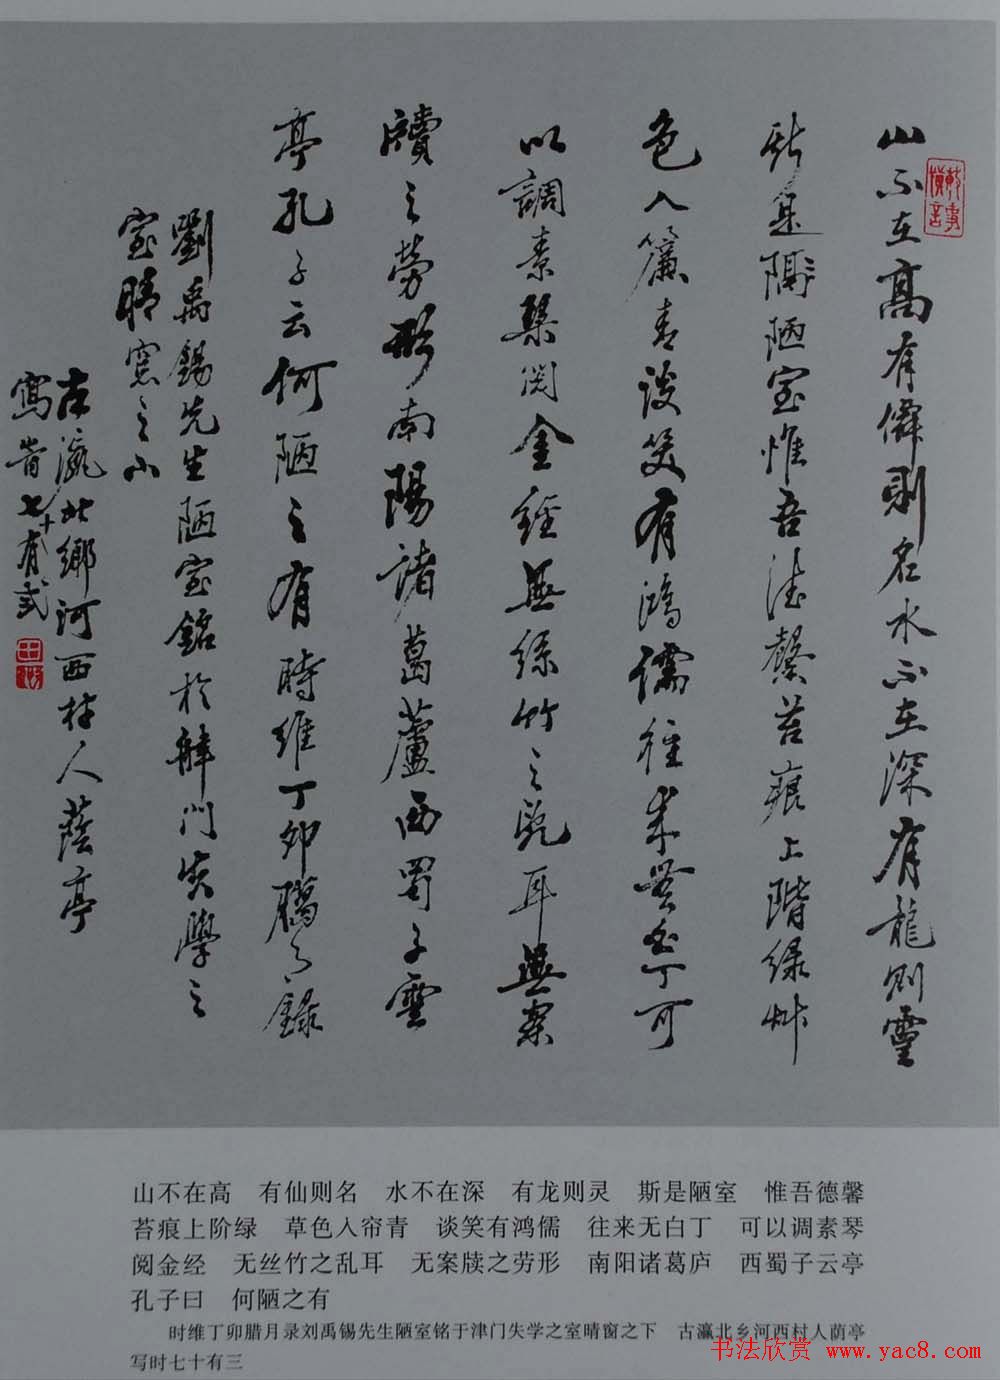 山不在高有僊則名水不在深有龍則靈
斯是陋陋室惟吾德馨苔痕上階綠艸
色入簾青談笑有鴻儒往來無白丁可
以調素琴閱金經無絲竹之亂耳無案
牘之勞形南陽諸葛蘆西蜀子雲
亭孔子云何陋之有時維丁卯臘月錄
劉禹錫先生陋室銘於津門失學之
室晴窓之下
古瀛北鄉河西村人蔭亭
寫時七十有弎
山不在高 有仙则名 水不在深 有龙则灵 斯是陋室 惟吾德馨
苔痕上阶绿 草色入帘青 谈笑有鸿儒 往来无白丁 可以调素琴
阅金经 无丝竹之乱耳 无案牍之劳形 南阳诸葛庐 西蜀子云亭
孔子曰 何陋之有
时维丁卯腊月录刘禹锡先生陋室铭于津门失学之室晴窗之下 古瀛北乡河西村人荫亭
写时七十有三
书法欣赏 www.yac8.com